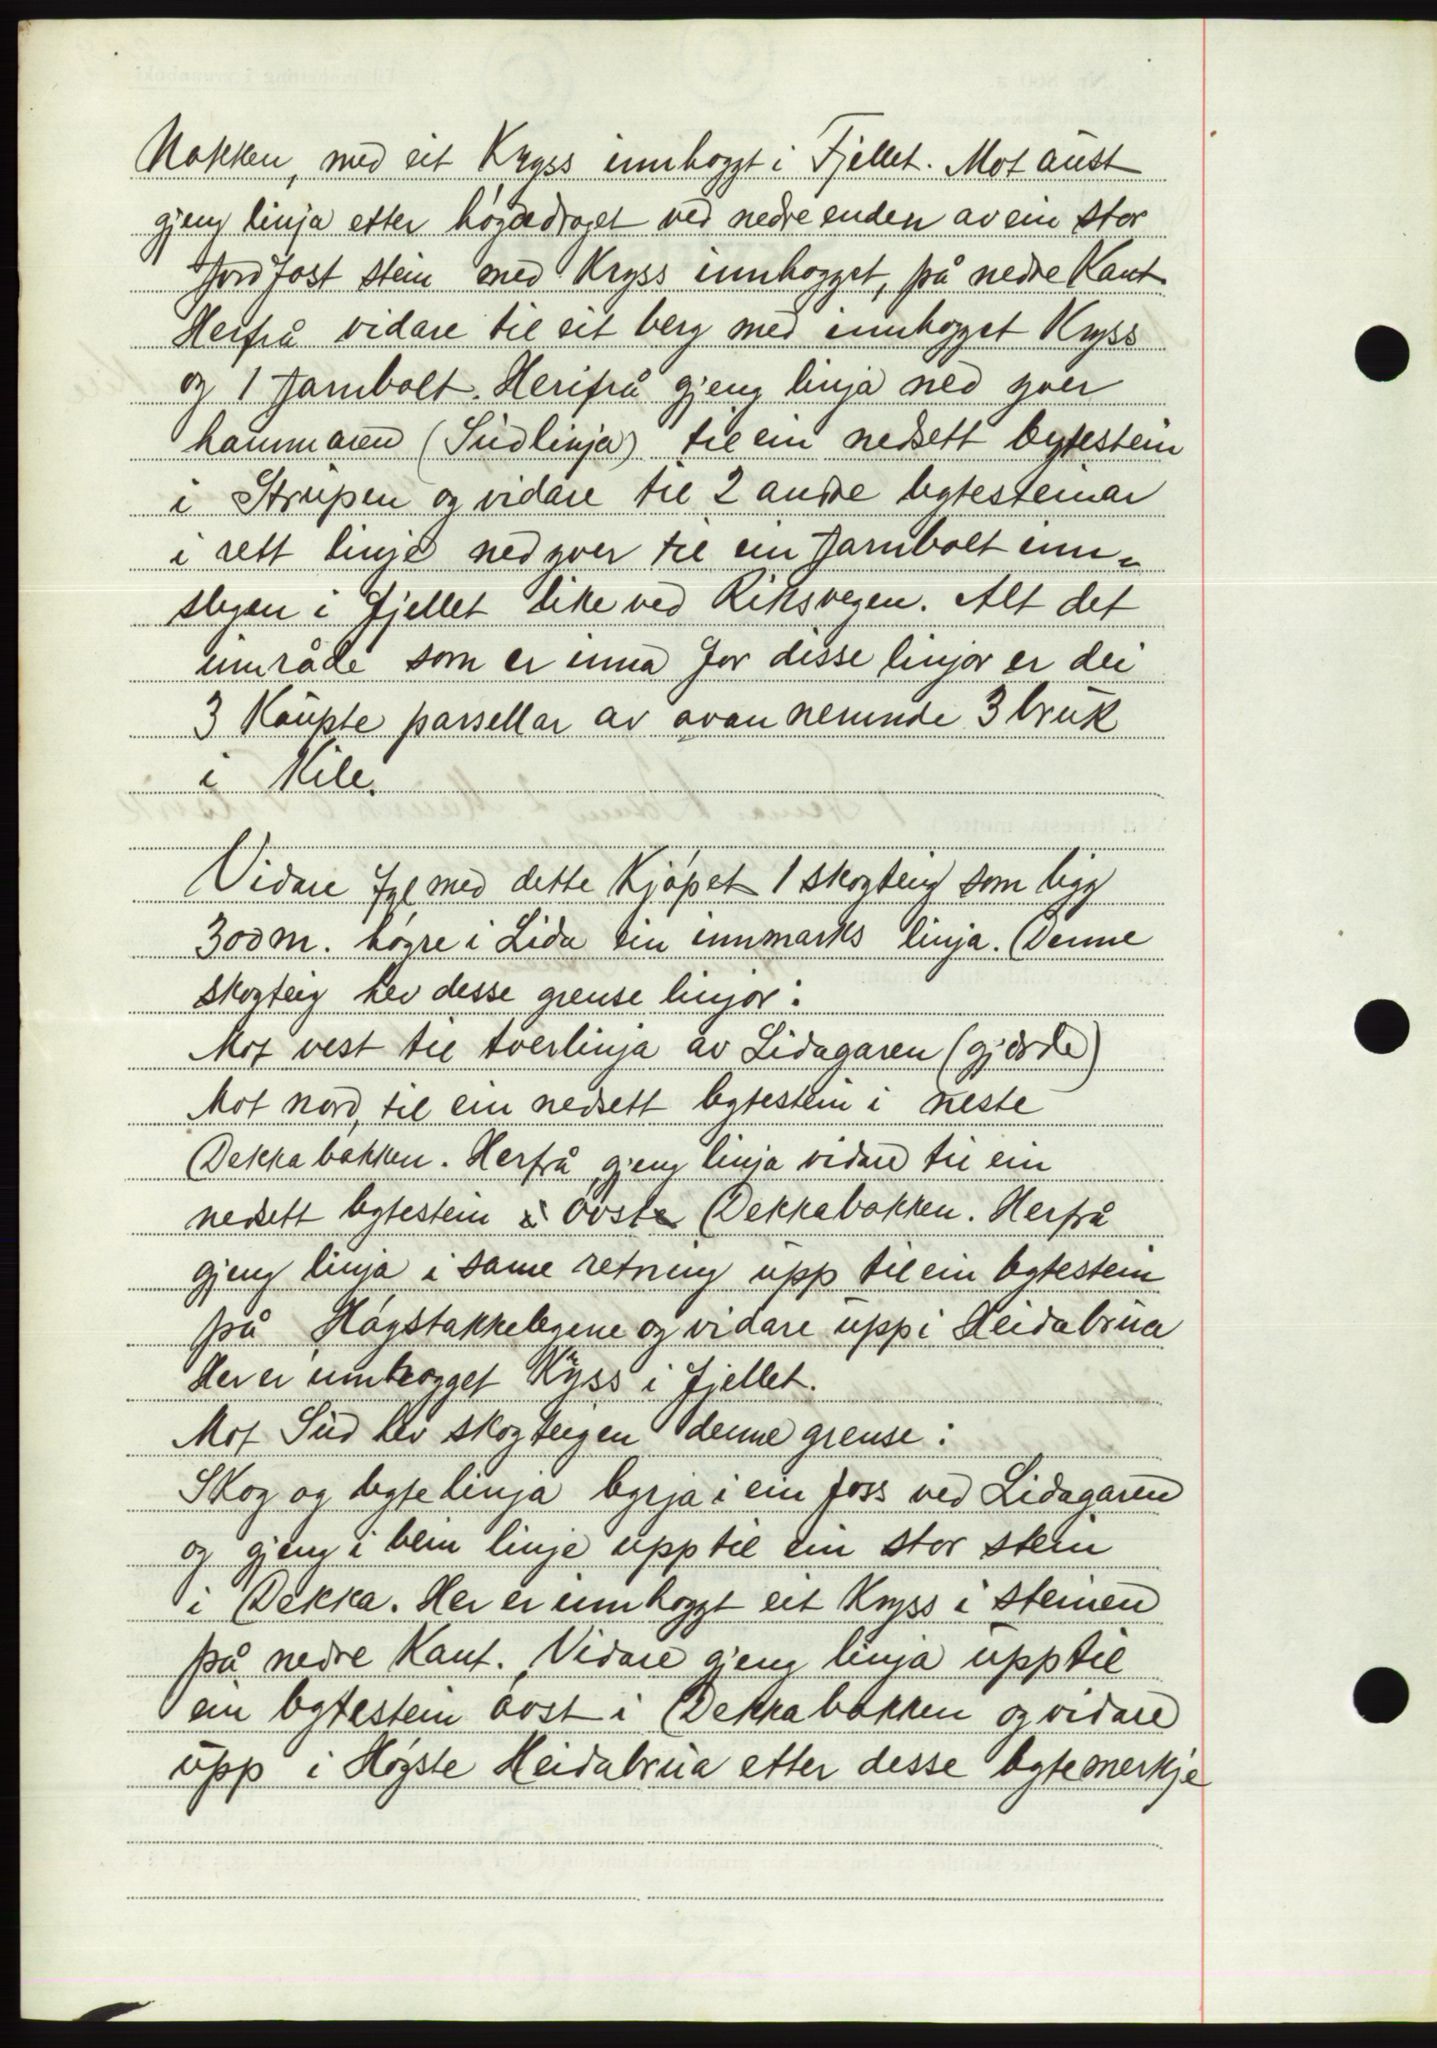 Nakken, med eit Kryss innhoggt i Fjellet. Mot aust
gjeng linja etter högdedraget ved nedre enden av ein stor
jordfast stein med Kryss innhogget, på nedre Kant.
Herfrå vidare til eit berg med innhogget Kryss
og 1 jarnbolt. Herifrå gjeng linja ned yver
hammaren (Sudlinja) til ein nedsett bytestein
i Strupen og vidare til 2 andre bytesteinar
i rett linje nedyver til ein jarnbolt inn-
slegen i fjellet like ved Riksvegen. Alt det
umråde som er inna for disse linjor er dei
3 Kaupte parsellar av ovan nemnde 3 bruk
i Kile.
Vidare fyl med dette Kjöpet 1 skogteig som ligg
300m. högre i Lida ein innmarks linja. Denne
skogteig hev desse grense linjor:
Mot vest til tverlinja av Lidagaren (gjerde)
Mot nord, til ein nedsett bytestein i neste
Dekkabakken. Herfrå gjeng linja vidare til ein
nedsett bytestein i övste Dekkabakken. Herfrå
gjeng linja i same retning upp til ein bytestein
på Högstakkelegene og vidare upp i Heidabrua
Her er innhogget Kryss i fjellet.
Mot Sud hev skogteigen denne grense:
Skog og bytelinja byrja i ein foss ved Lidagaren
og gjeng i bein linje upp til ein stor stein
i Dekka. Her er innhoggt eit Kryss i steinen
på nedre Kant. Vidare gjeng linja upp til
ein bytestein övst i Dekkabakken og vidare
upp i Högste Heidabrua etter desse bytemerkje